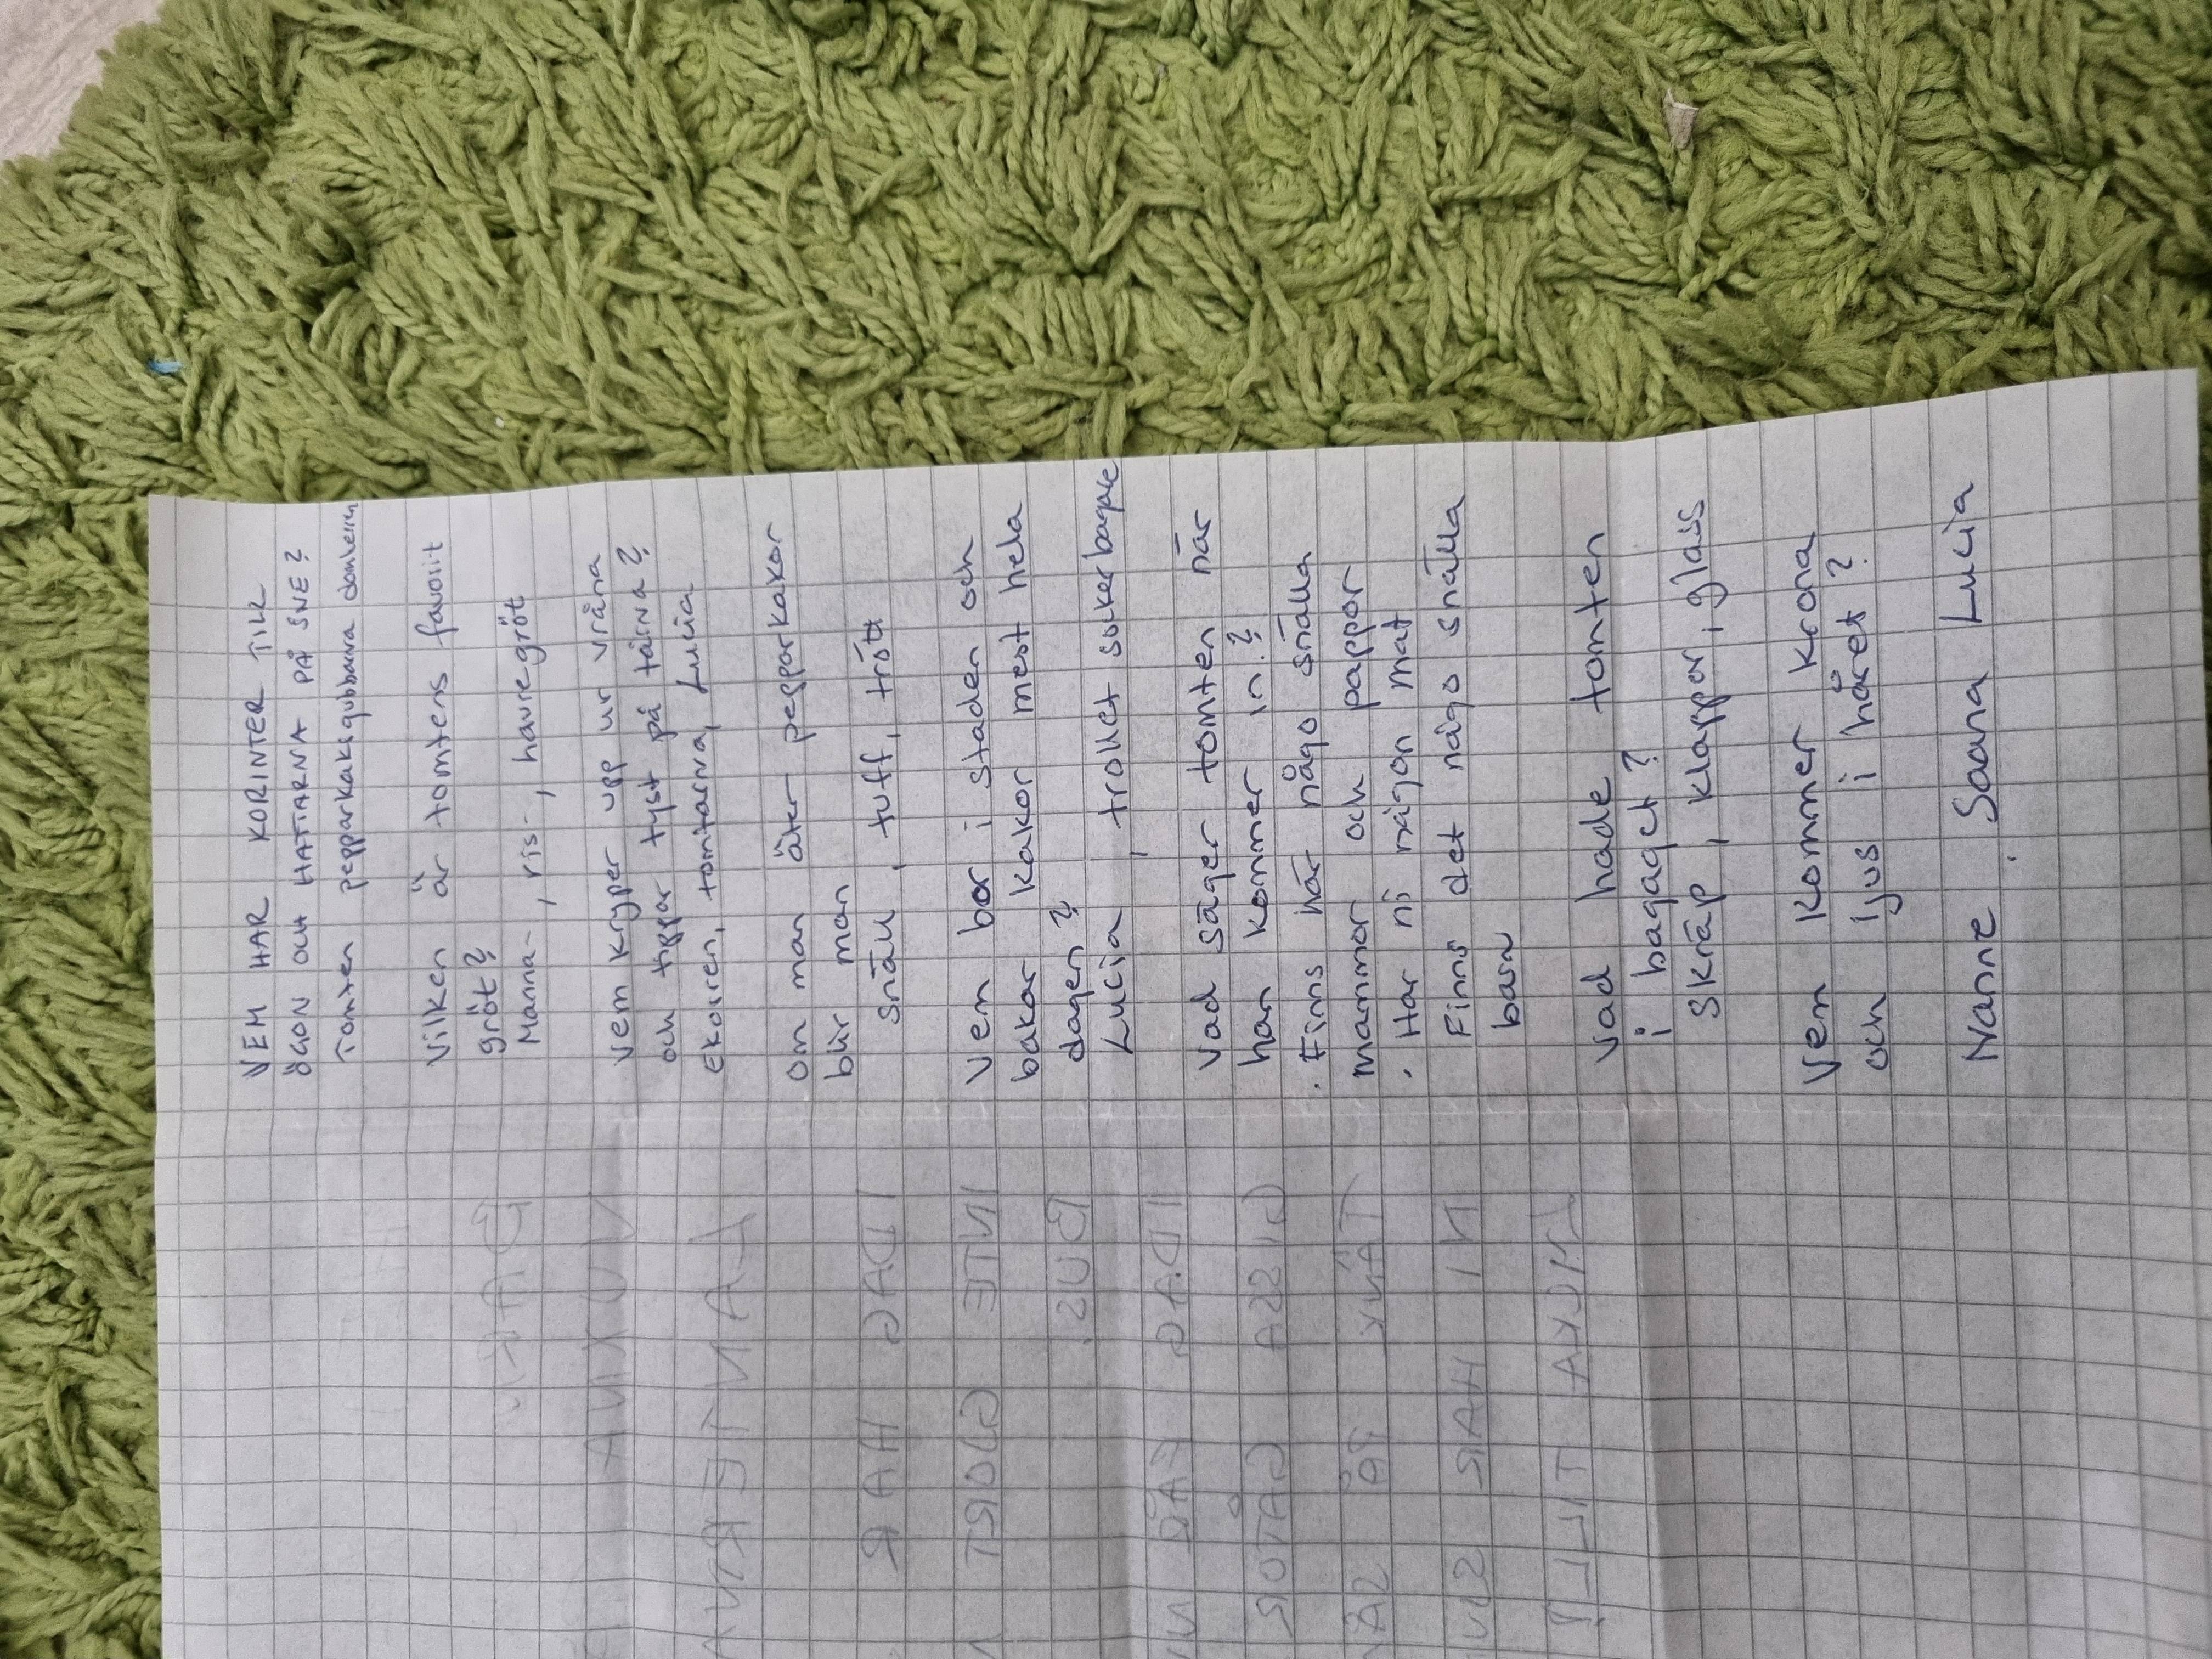 VEM HAR KORINTER TILL
ÖGON OCH HATTARNA PÅ SNE?
Tomten pepparkaksgubbarna domherren
Vilken är tomtens favorit
gröt?
Manna-, ris-, havregröt
Vem kryper upp ur vråna
och tippar tyst på tårna?
Ekorren, tomtarna, Lucia
Om man äter pepparkakor
blir man
snäll, tuff, trött
Vem bor i staden och
bakar kakor mest hela
dagen?
Lucia, trollet sockerbagare
Vad säger tomten när
han kommer in?
. Finns här någo snälla
mammor och pappor
. Har ni någon mat
Finns det någo snälla
barn
Vad hade tomten
i bagaget?
skräp, klappar, glass
Vem kommer krona
och ljus i håret?
Nanne, Saana Lucia